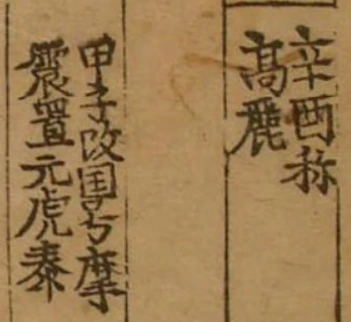 辛酉称
高麗
甲子改国号摩
震置元虎泰